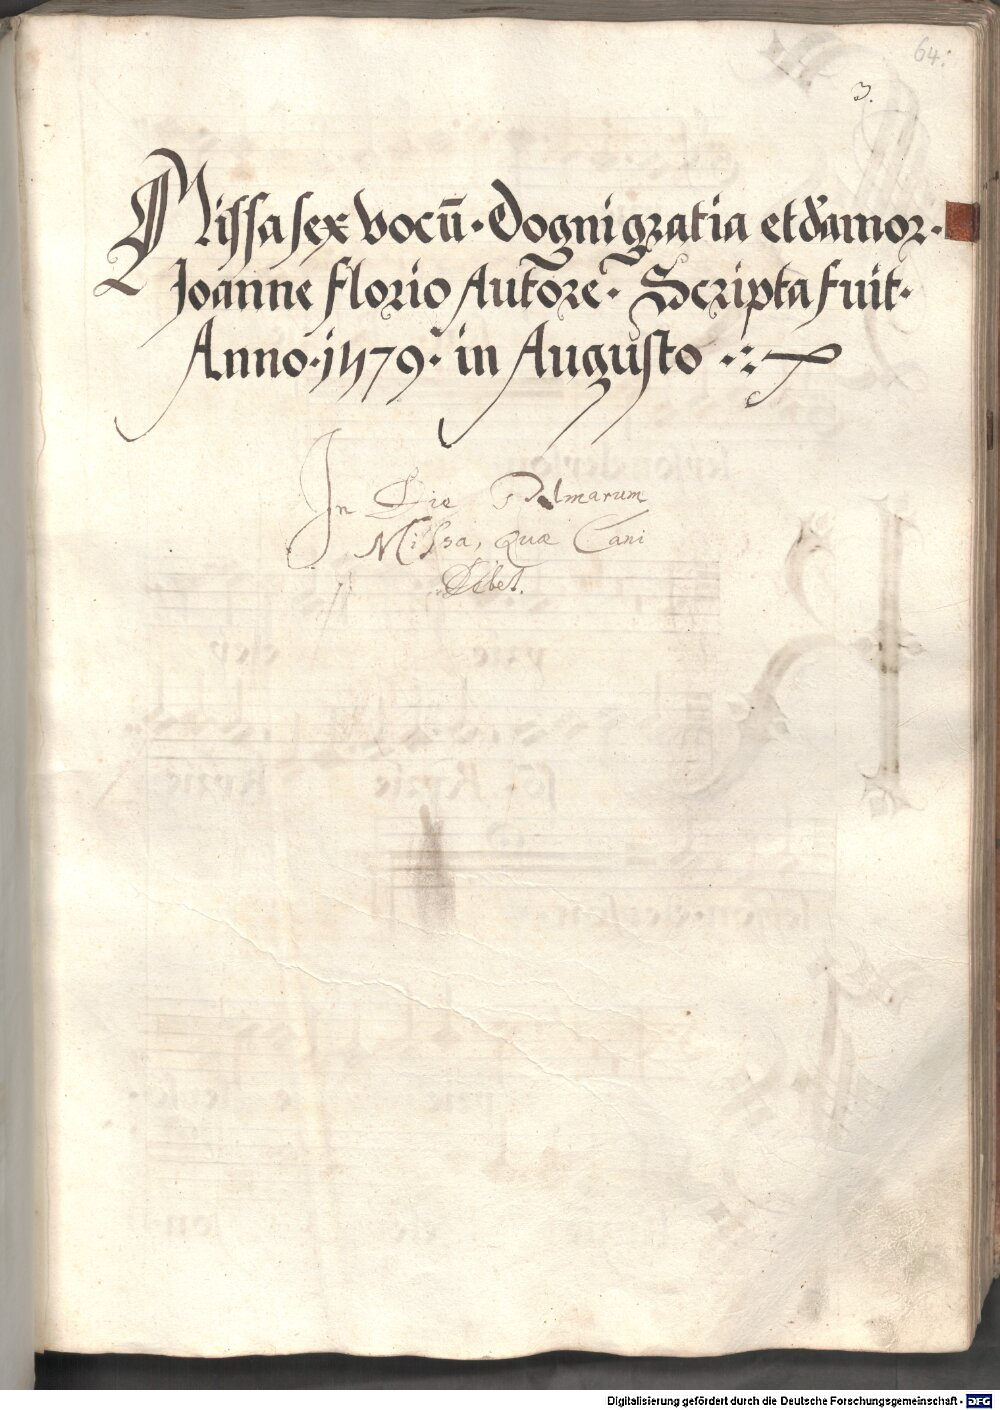 64.
3.
Missa sex vocū · Dogni gratia et d'amor ·
Joanne Florio Autore · Scripta fuit ·
Anno · 1579 · in Augusto
In Die Palmarum
Missa, quæ Cani
Debet.
Digitalisierung gefördert durch die Deutsche Forschungsgemeinschaft - DFG